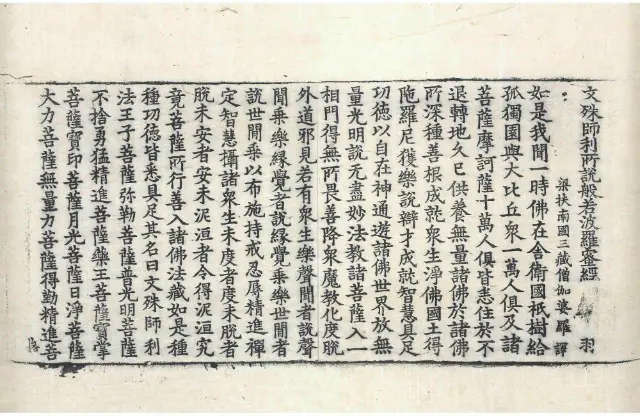 文殊師利所說般若波羅蜜經 羽
梁扶南國三藏僧伽婆羅譯
如是我聞一時佛在舍衛國祇樹給
孤獨園與大比丘衆一萬人俱及諸
菩薩摩訶薩十萬人俱皆悉住於不
退轉地久已供養無量諸佛於諸佛
所深種善根成就衆生淨佛國土得
陁羅尼獲樂說辯才成就智慧具足
功德以自在神通遊諸佛世界放無
量光明說无盡妙法教諸菩薩入一
相門得無所畏善降衆魔教化度脫
外道邪見若有衆生樂聲聞者說聲
聞乘樂緣覺者說緣覺乘樂世間者
說世間乘以布施持戒忍辱精進禪
定智慧攝諸衆生未度者度未脫者
脫未安者安未泥洹者令得泥洹究
竟菩薩所行善入諸佛法藏如是種
種功德皆悉具足其名曰文殊師利
法王子菩薩弥勒菩薩普光明菩薩
不捨勇猛精進菩薩藥王菩薩寶掌
菩薩寶印菩薩月光菩薩日淨菩薩
大力菩薩無量力菩薩得勤精進菩